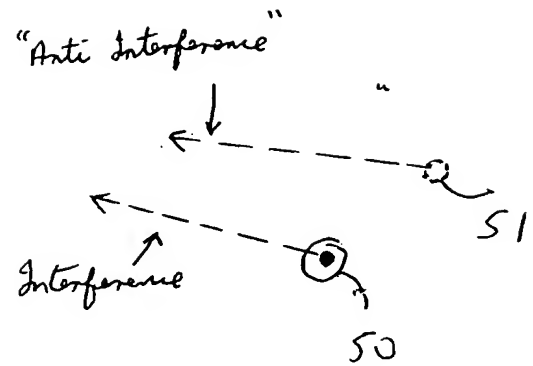 "Anti Interference"
51
Interference
50